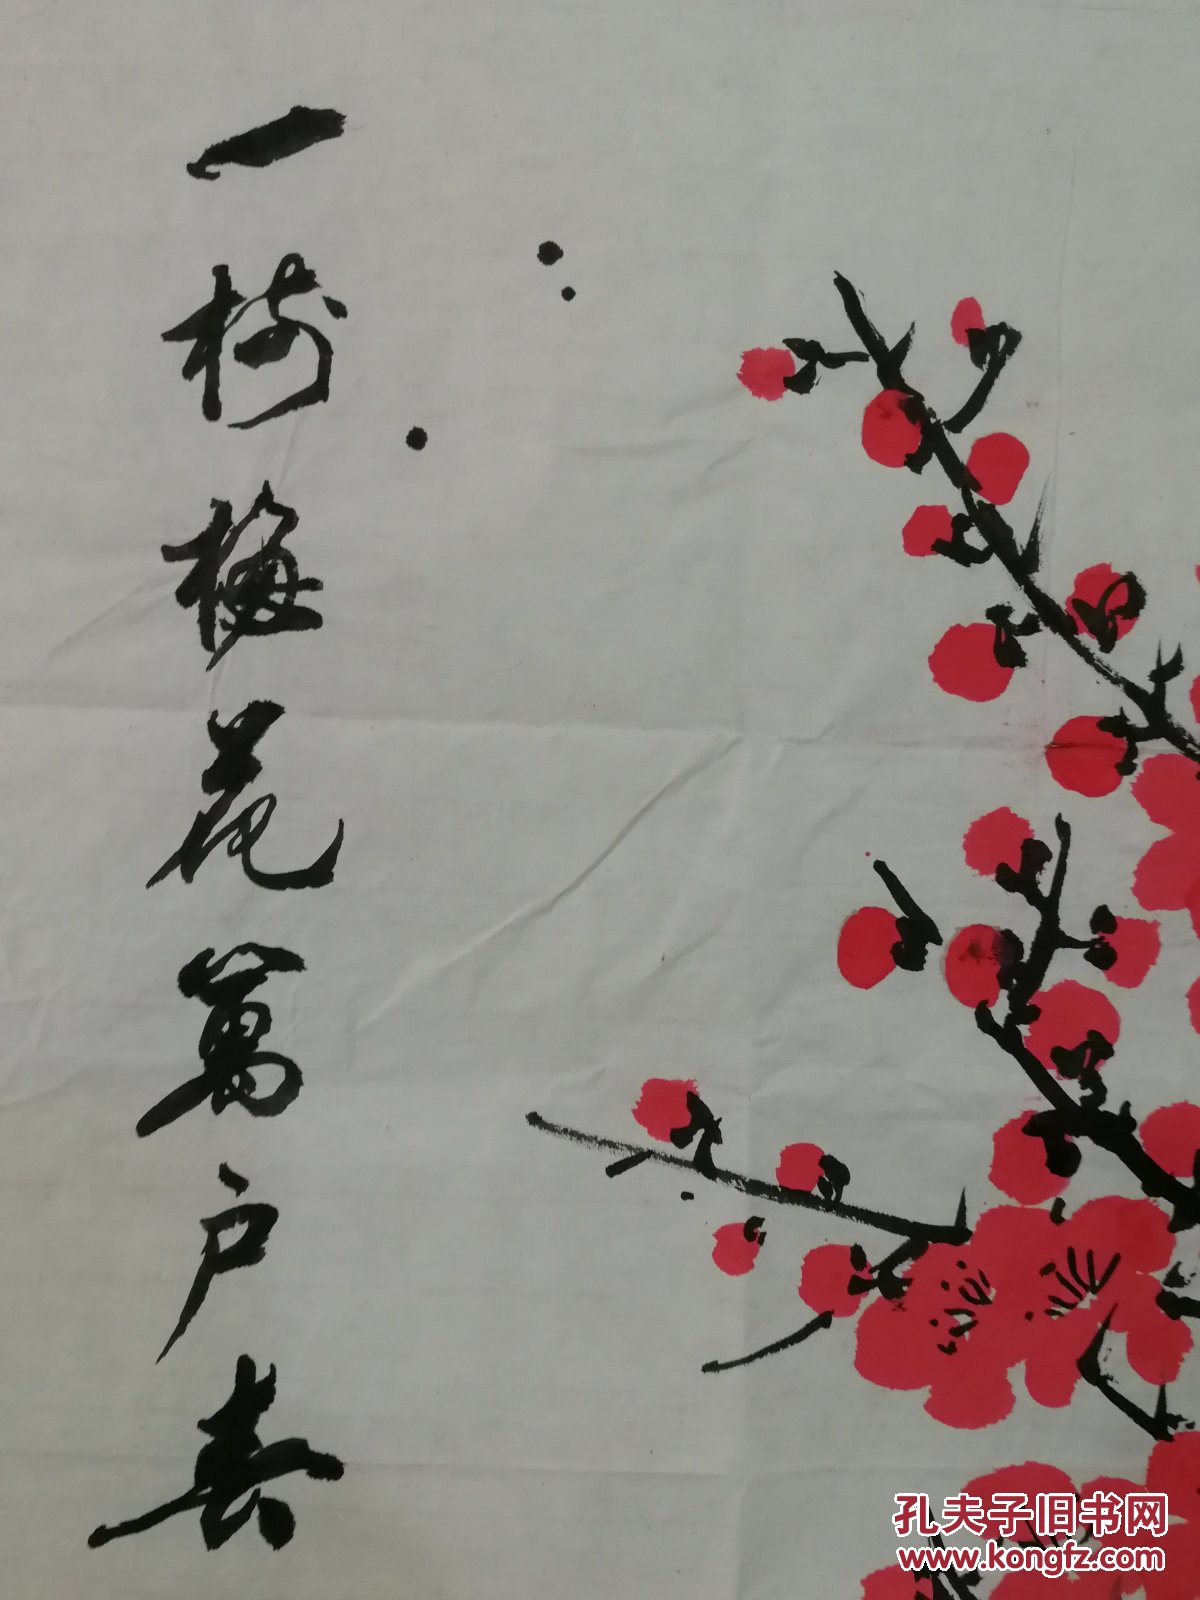 一树梅花萬户春
孔夫子旧书网
www.kongfz.com